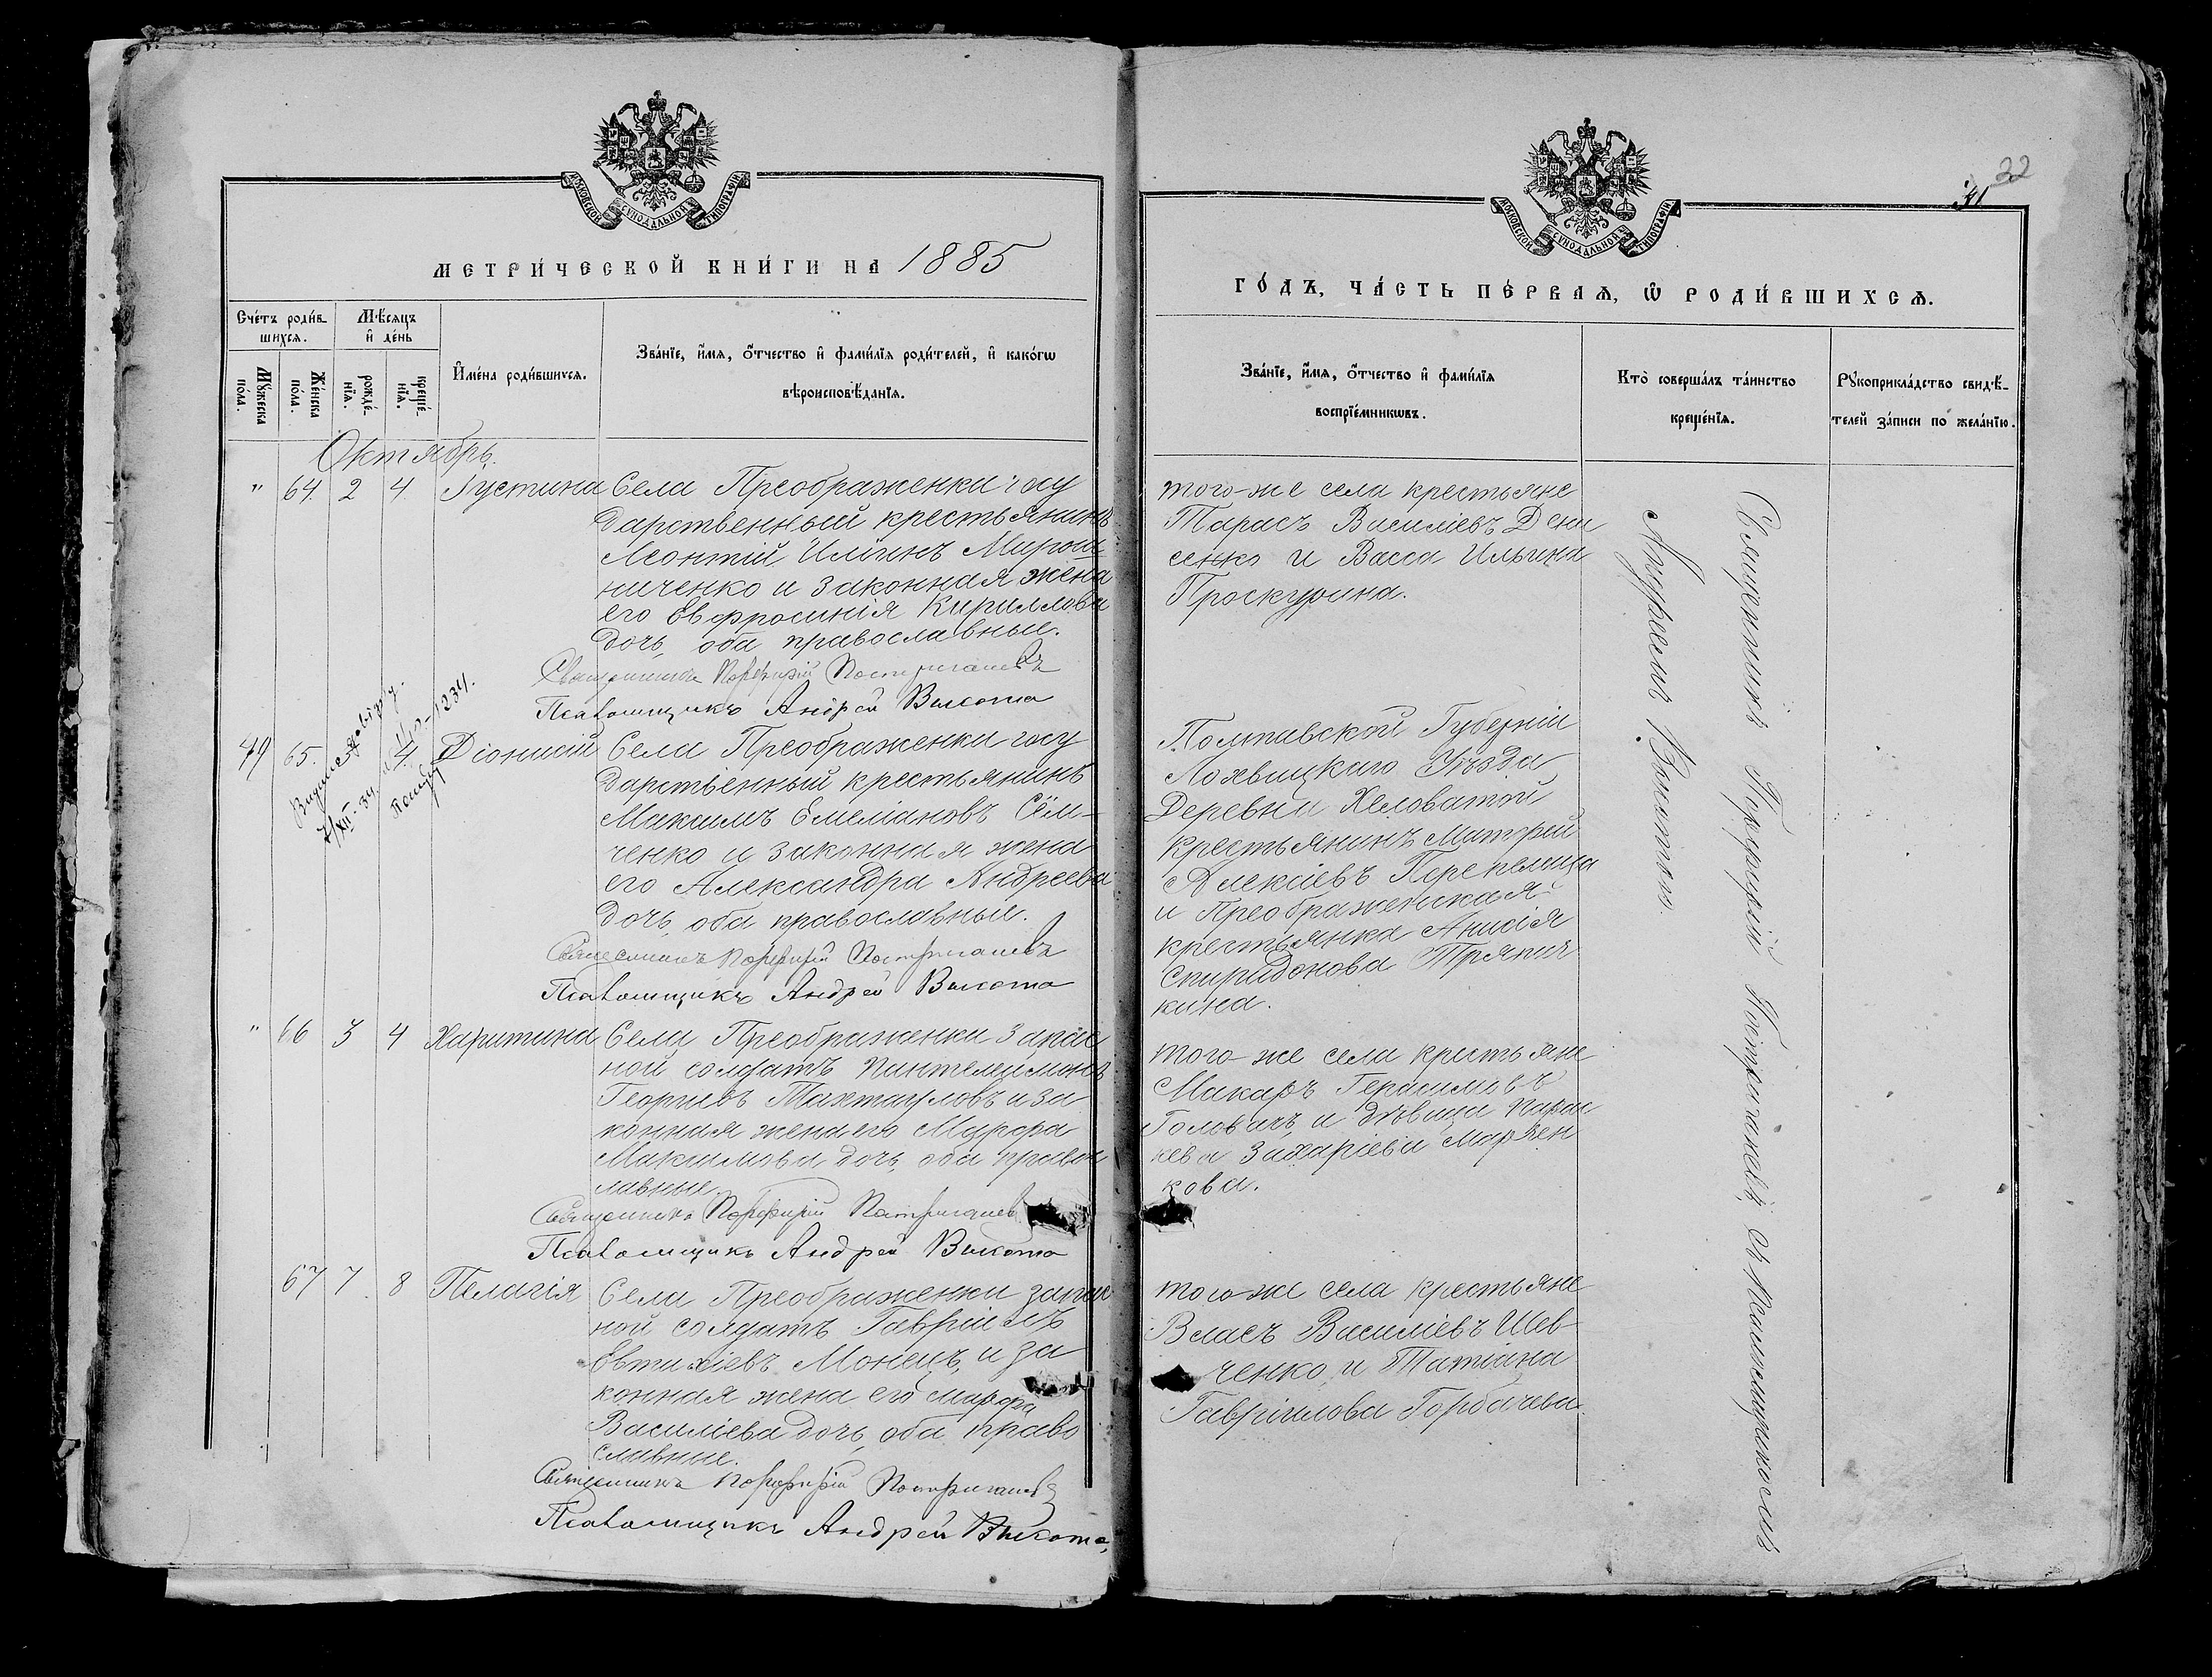 МОСКОВСКОЙ СѴНОДАЛЬНОЙ ТИПОГРАФІИ
МЕТРИ́ЧЕСКОЙ КНИ́ГИ НА 1885
Сче́тъ роди́в-
шихсѧ.
Мѣ́сѧцъ
и҆ де́нь
Мꙋ́жеска
по́ла.
Же́нска
пола.
рожде́-
нїѧ.
креще́-
нїѧ.
И҆мена̀ роди́вшихсѧ.
Зва́нїе, и҆́мѧ, ѻ҆́тчество и҆ фами́лїѧ роди́телей, и҆ како́гѡ
вѣроисповѣ́данїѧ.
Октябрь.
" 64. 2 4 Іустина Села Преображенки госу
дарственный крестьянинъ
Леонтій Ильинъ Мирош
ниченко и законная жена
его Евфросинія Кириллова
дочь, оба православные.
Священникъ Порфирій Постриганевъ
Псаломщикъ Андрей Высота
49 65. 4. Діонисій Села Преображенки госу
дарственный крестьянинъ
Максимъ Емеліановъ Сём-
ченко и законная жена
его Александра Андреева
дочь, оба православные.
Священникъ Порфирій Постриганевъ
Псаломщикъ Андрей Высота
" 66 3 4 Харитина Села Преображенки запас
ной солдатъ Пантелеимонъ
Георгіевъ Тахтауловъ и за
конная жена его Марфа
Максимова дочь, оба право
лавные
Священникъ Порфирій Постриганевъ
Псаломщикъ Андрей Высота
67 7 8 Пелагія Села Преображенки запас
ной солдатъ Гавріилъ
Евтихіевъ Монецъ, и за
конная жена его Марфа
Василіева дочь, оба право
славные.
Священникъ Порфирій Постриганевъ
Псаломщикъ Андрей Высота
22
МОСКОВСКОЙ СѴНОДАЛЬНОЙ ТИПОГРАФІИ
ГО́ДЪ, ЧА́СТЬ ПЕ́РВАѦ, Ѡ҆ РОДИ́ВШИХСѦ.
Зва́нїе, и҆́мѧ, ѻ҆́тчество и҆ фами́лїѧ
воспрїе́мникѡвъ.
Кто̀ соверша́лъ та́инство
креще́нїѧ.
Рꙋкоприкла́дство свидѣ́-
телей за́писи по жела́нїю.
того-же села крестьяне
Тарасъ Василіевъ Дени
сенко и Васса Ильина
Проскурина.
Полтавской Губерніи
Лохвицкаго Уѣзда
Деревни Хеловатой
крестьянинъ Матфей
Алексіевъ Перепелица
и Преображенская
крестьянка Анисія
Спиридонова Тряпич
кина.
того-же села крестьяне
Макаръ Герасимовъ
Головачъ, и дѣвица Парас
кева Захаріева Марчен
кова.
того-же села крестьяне
Власъ Василіевъ Шев
ченко, и Татіана
Гавріилова Горбачева.
Священникъ Порфирій Постриганевъ съ Псаломщикомъ
Андреемъ Высотою.